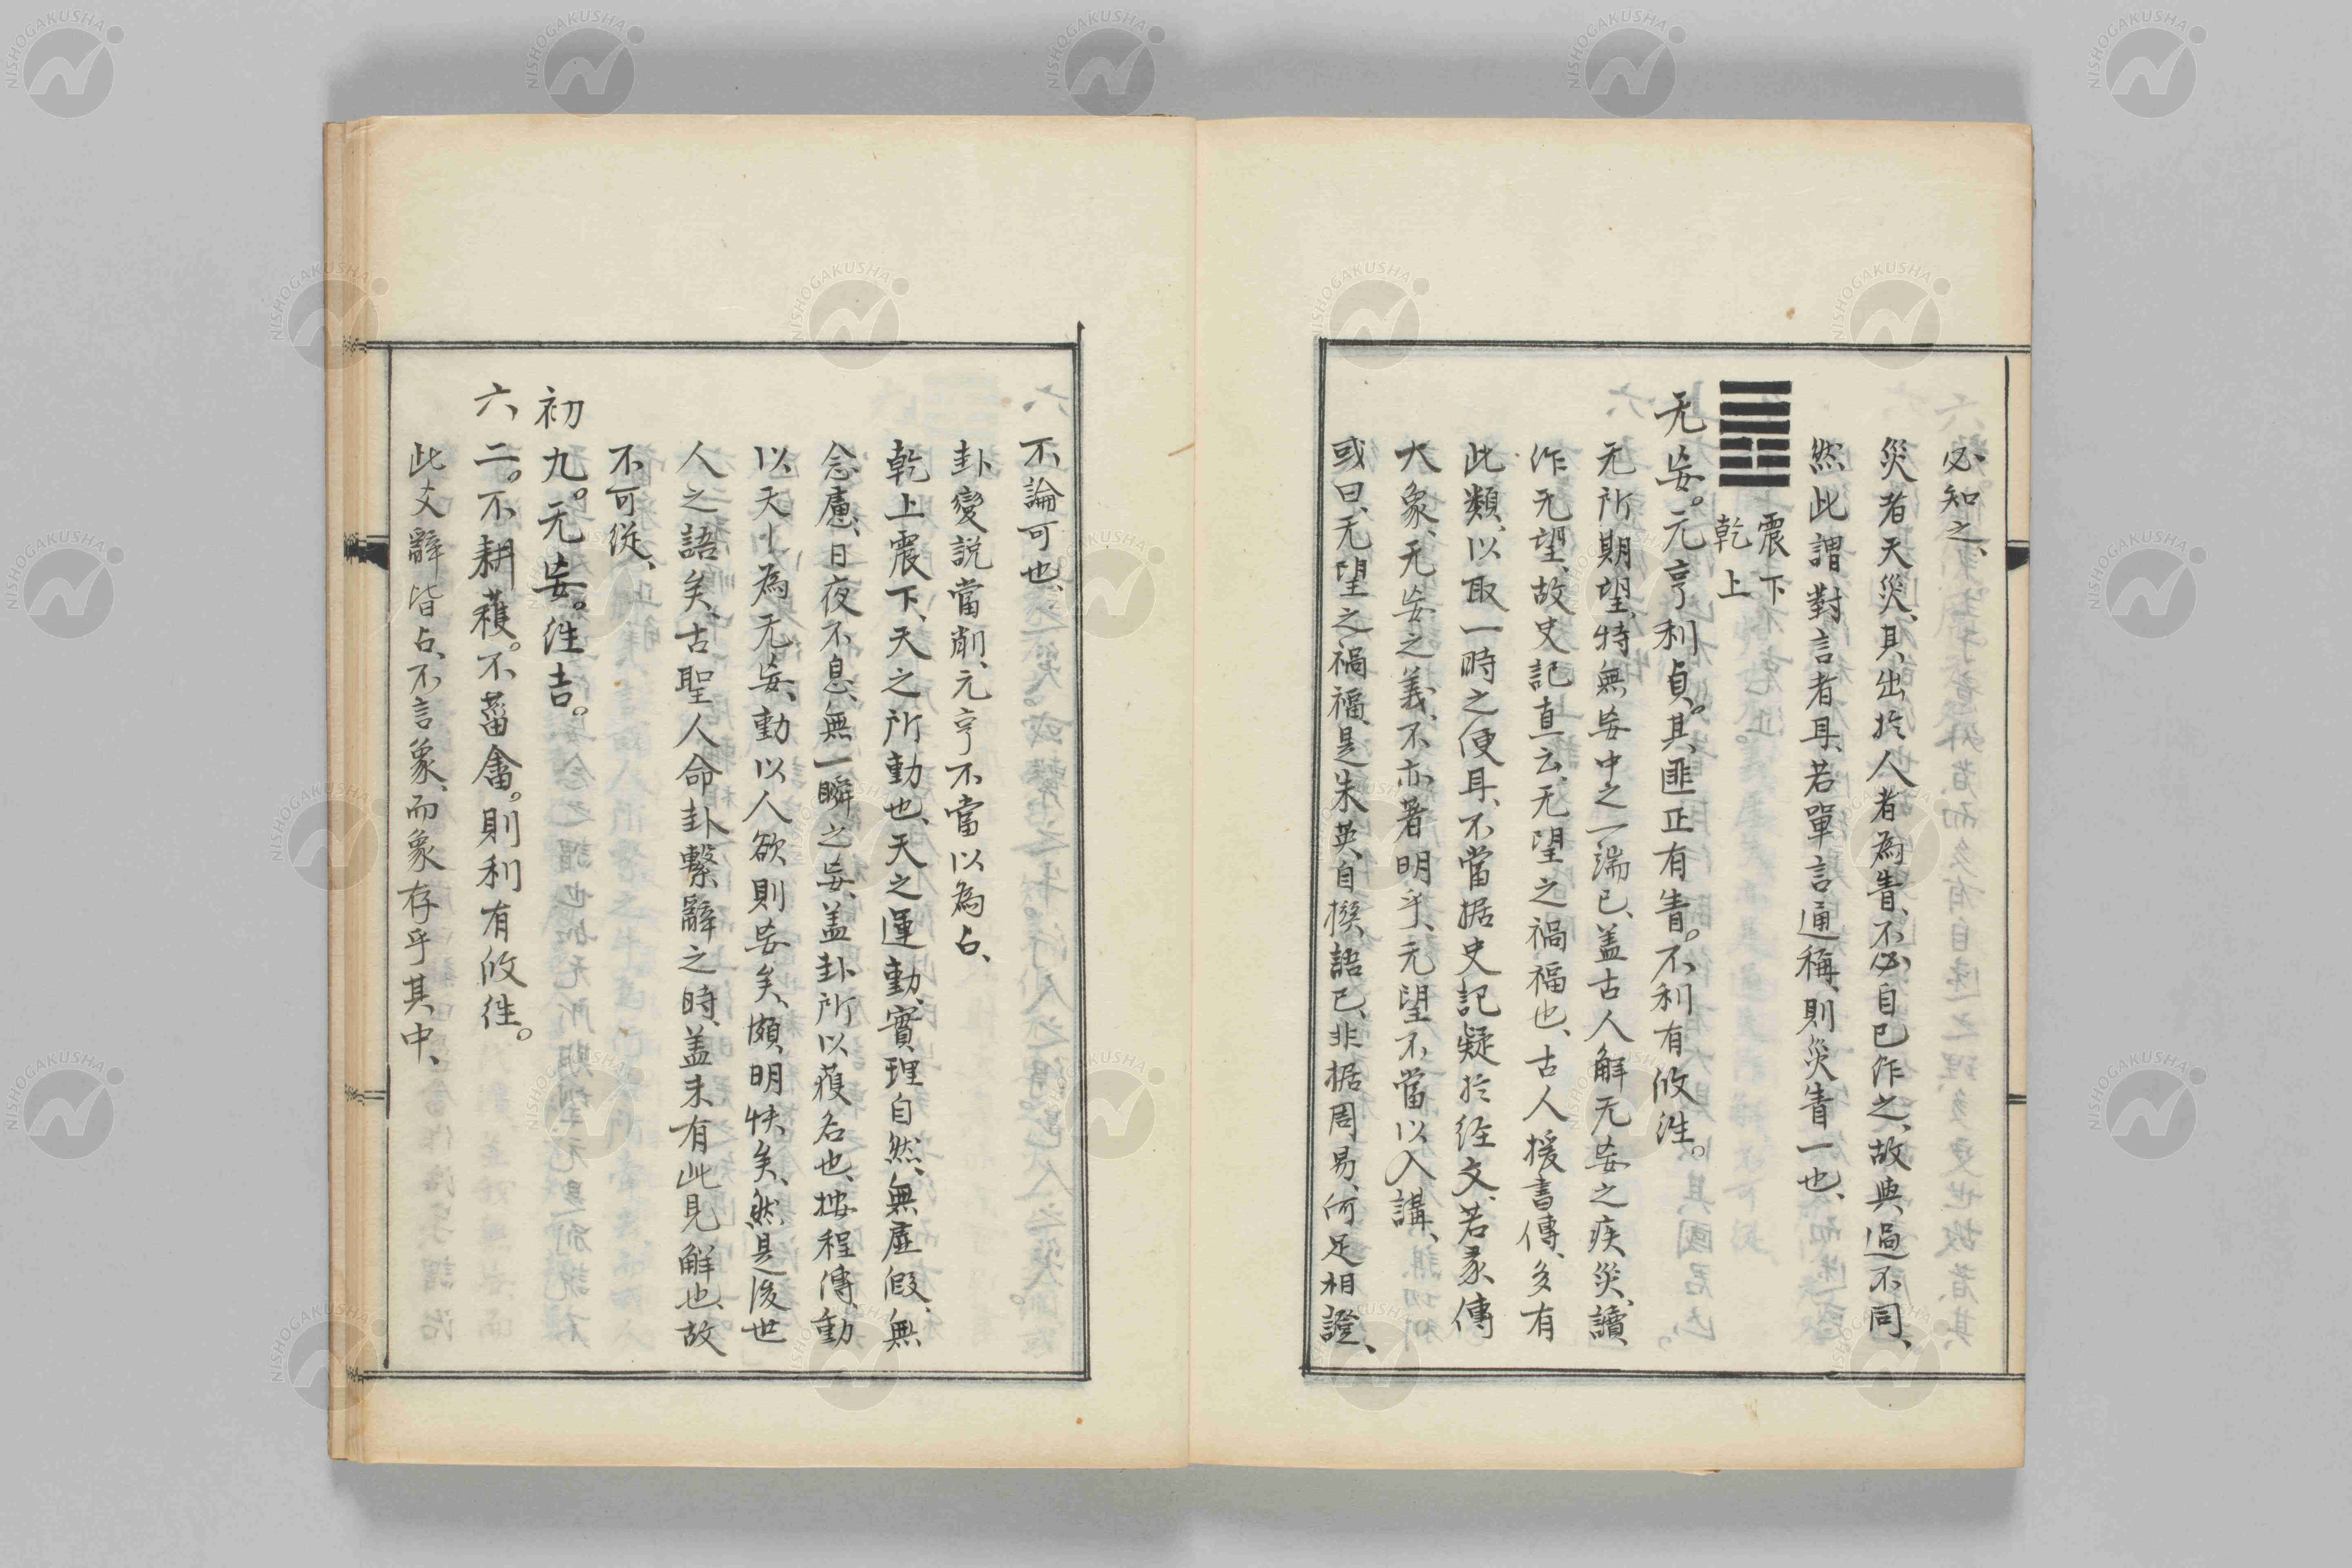 必知之、
災者天災、其出於人者為眚、不必自己作之、故與過不同、
然此謂對言者耳、若單言通稱、則災眚一也、
震下
乾上
无妄。元亨利貞。其匪正有眚。不利有攸往。
无所期望、特無妄中之一端已、蓋古人解无妄之疾災、讀
作无望、故史記直云、无望之禍福也、古人援書傳、多有
此類、以取一時之便耳、不當据史記疑於經文、若彖傳
大象、无妄之義、不亦著明乎、无望不當以入講、
或曰、无望之禍福、是朱英自撰語已、非据周易、何足相證、
不論可也、
卦變說當削、元亨不當以為占、
乾上震下、天之所動也、天之運動、實理自然、無虛假、無
念慮、日夜不息、無一瞬之妄、蓋卦所以獲名也、按程傳、動
以天為无妄、動以人欲則妄矣、頗明快矣、然是後世
人之語矣、古聖人命卦繫辭之時、蓋未有此見解也、故
不可從、
初九。无妄。往吉。
六二。不耕穫。不菑畬。則利有攸往。
此文辭皆占、不言象、而象存乎其中、
NISHOGAKUSHA